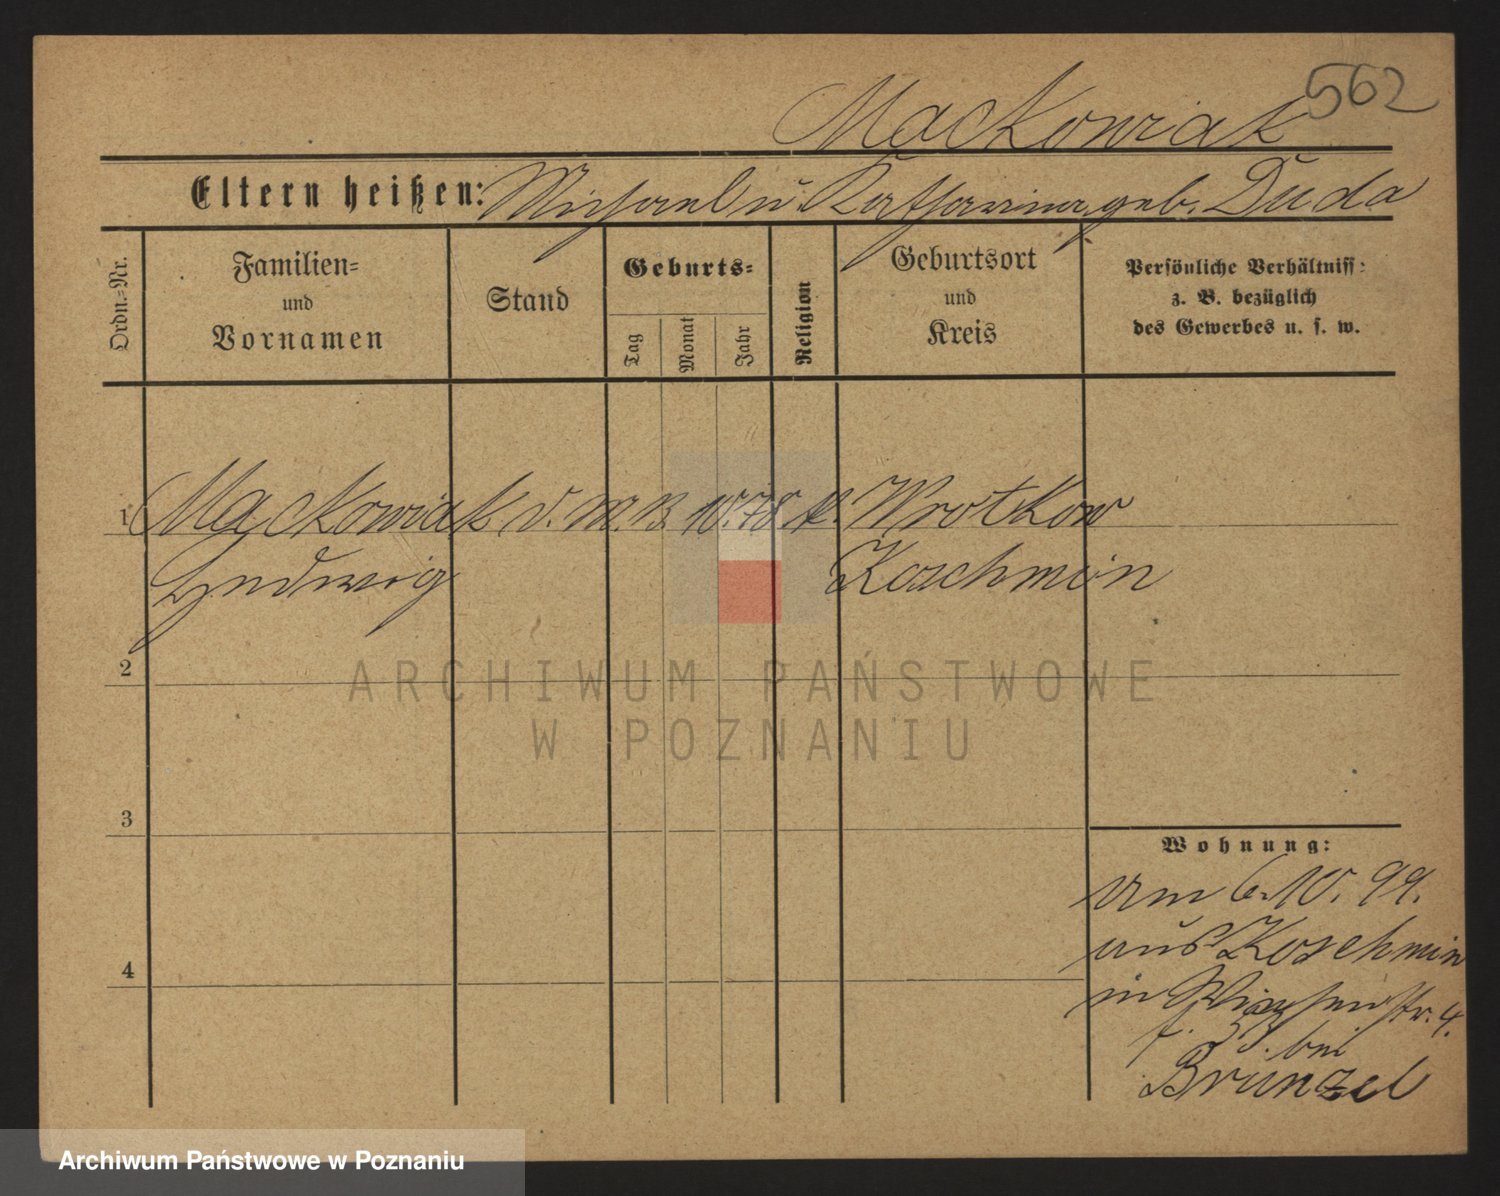 562
Mackowiak
Eltern heißen: Michael u. Katharina geb. Duda
Ordn.-Nr.
Familien-
und
Vornamen
Stand
Geburts-
Tag
Monat
Jahr
Religion
Geburtsort
und
Kreis
Persönliche Verhältniss:
z. B. bezüglich
des Gewerbes u. s. w.
1 Mackowiak 10. 78. k. Wrotkow
Hedwig Koschmin
2
ARCHIWUM PAŃSTWOWE
W POZNANIU
3
4
Wohnung:
6. 10. 99.
aus Koschmin
in str. 4.
bei
Brunzel
Archiwum Państwowe w Poznaniu